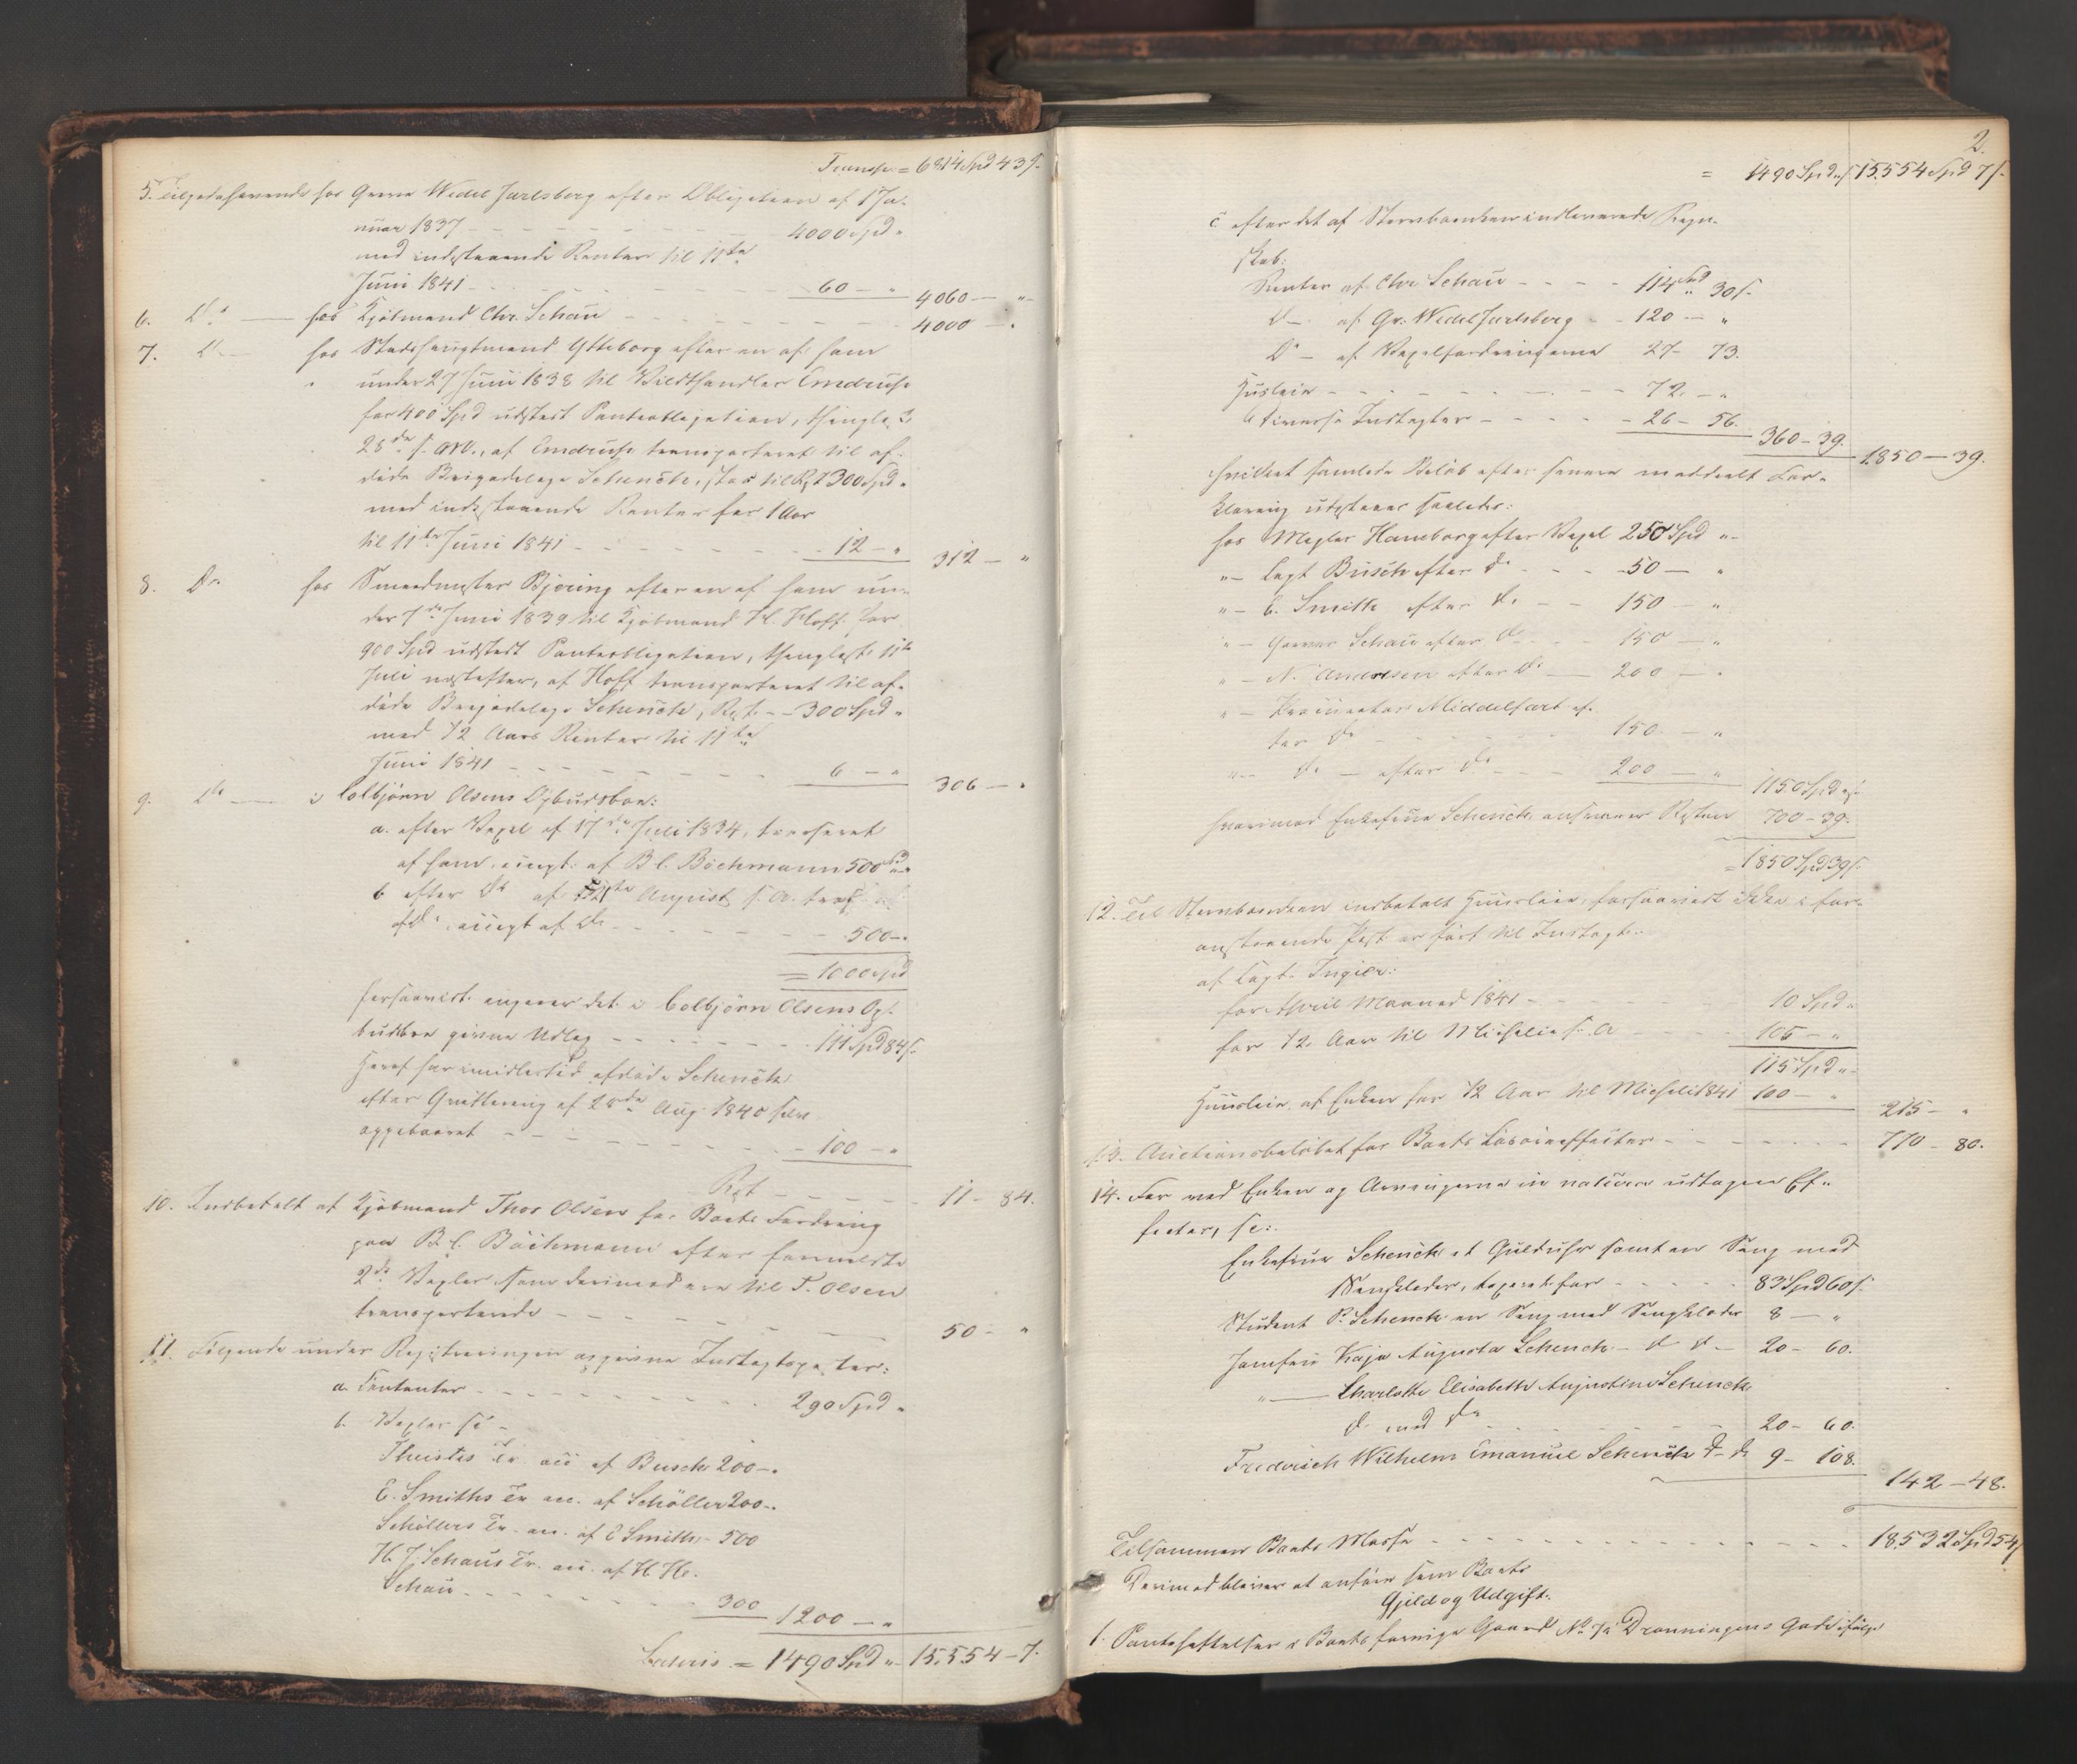 Transp. = 6814 Spd 43 s.
5. Tilgodehavende hos Greve Wedel Jarlsberg efter Obligation af 1 Ja-
nuar 1837 - - - 4000 Spd "
med indestaaende Renter til 11te
Juni 1841 - - - 60 - " 4060 - "
6. Do - hos Kjøbmand Chr. Schau - - - 4000 - "
7. Do - hos Stadshauptmand Ytteborg efter en af ham
under 27 Juni 1838 til Vildthandler Emdruhs
for 400 Spd udstedt Panteobligation, thinglæst
28de s. M., af Emdruhs transporteret til af-
døde Brigadelæge Schenck, stor til Rest 300 Spd "
med indestaaende Renter for 1 Aar
til 11te Juni 1841 - - - 12 - " 312 - "
8. Do hos Smedmester Bjering efter en af ham un-
der 7de Juni 1839 til Kjøbmand H. Hoff for
900 Spd udstedt Panteobligation, thinglæst 11te
Juli næstefter, af Hoff transporteret til af-
døde Brigadelæge Schenck, Rest - - 300 Spd "
med 1/2 Aars Renter til 11te
Juni 1841 - - - 6 - " 306 - "
9. Do - i Colbjørn Olsens Opbudsboe:
a. efter Vexel af 17de Juli 1834, trasseret
af ham, accept. af B C. Böchmann 500 Spd "
b efter Do af August s. A. tras.
af do, accept af do - - - 500 - "
= 1000 Spd
forsaavidt angaaer det i Colbjørn Olsens Op-
budsboe givne Udlæg - - - 111 Spd 84 s.
Heraf har imidlertid afdøde Schenck
efter Qvittering af 28de Aug. 1840 selv
oppebaaret - - - 100 - "
Rest - - - 11 - 84.
10. Indbetalt af Kjøbmand Thor Olsen for Boets Fordring
paa B. C. Böchmann efter formeldte
2de Vexler som derimod ere til T. Olsen
transporterede - - - 50 - "
11. Følgende under Registreringen opgivne Indtægtsposter:
a. Contanter - - - 290 Spd "
b. Vexler sc -
Thuestes Tr. acc af Busch 200 - "
E. Smiths Tr. acc. af Schöller 200 - "
Schöllers Tr. acc. af E Smith - 500
H. J. Schaus Tr. acc. af H. Hr.
Schau - - - 300 1200 - "
Lateris = 1490 Spd " 15,554 - 7.
2.
= 1490 Spd " s 15,554 Spd 7 s.
c efter det af Stervboenken indleverede Regn-
skab:
Renter af Chr Schau - - - - 114 Spd 30 s.
Do - af Gr. Wedel Jarlsberg - - 120 - "
Do - af Vexelfordringerne 27 - 73.
Huusleie - - - 72. - "
diverse Indtægter - - - 26 - 56.
360 - 39. 1850 - 39.
hvilket samlede Beløb efter senere meddeelt For-
klaring udestaaer saaledes:
hos Megler Hamborg efter Vexel 250 Spd "
" - Capt Büsch efter do - - - 50 - "
" - E. Smith efter do - - 150 - "
" - Schau efter do - - 150 - "
" - N. Andresen efter do - 200 - "
" - Procurator Middelfart ef-
ter do - - - 150. - "
" - do - efter do - - - 200 - " 1150 Spd " s
hvorimod Enkefrue Schenck ansvarer Resten 700 - 39.
= 1850 Spd 39 s.
12. Til Stervboenken indbetalt Huusleie, forsaavidt ikke i for-
anstaaende Post er ført til Indtægt..
af Capt. Ingier:
for April Maaned 1841 - - - 10 Spd "
for 1/2 Aar til Michelie s. A - - - 105 - "
115 Spd "
Huusleie af Enken for 1/2 Aar til Michelie 1841 100 - " 215 - "
13. Auctionsbeløbet for Boets Løsøreeffecter - - - 770 - 80.
14. For ved Enken og Arvingerne in natura udtagne Ef-
fecter, sc:
Enkefrue Schenck et Guldühr samt en Seng med
Sengklæder, taxeret for - - - 83 Spd 60 s.
Student P. Schenck en Seng med Sengklæder 8 - "
Jomfru Kaja Augusta Schenck - do do - 20 - 60.
" - Charlotte Elisabeth Augustine Schenck
do med do - - - 20 - 60.
Frederich Wilhelm Emanuel Schenck do - do 9 - 108.
142 - 48.
Tilsammen Boets Masse - - - 18,532 Spd 54 s
Derimod bliver at anføre som Boets
Gjeld og Udgift.
1. Panteheftelser i Boets forrige Gaard No 7a Dronningens Gade ifølge